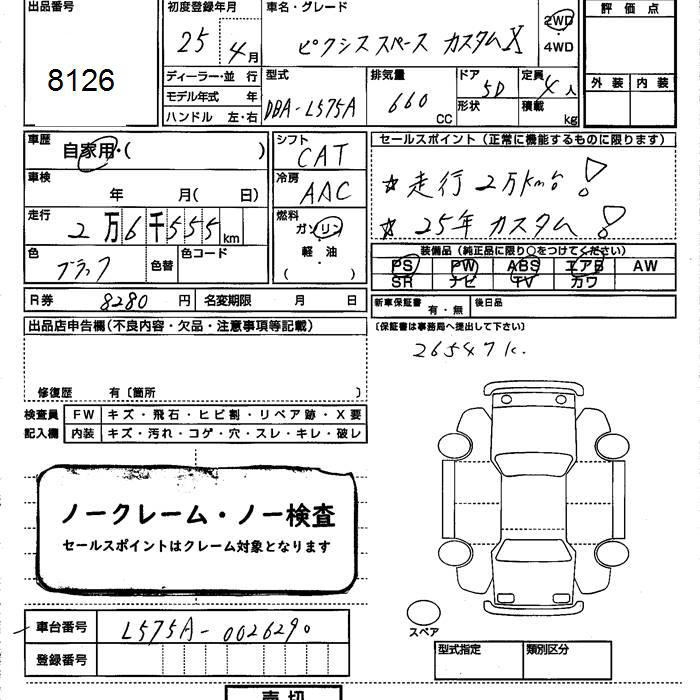 出品番号
8126
初度登録年月
25年 4月
車名・グレード
ピクシススペース カスタムX
2WD
・
4WD
評価点
外装 内装
ディーラー・並 行
モデル年式 年
ハンドル 左・右
型式
DBA-L575A
排気量
660
CC
ドア
5D
形状
定員
4人
積載
kg
車歴
自家用・( )
車検
年 月( 日)
走行
2万6千555km
色
ブラック
色替
色コード
シフト
CAT
冷房
AAC
燃料
ガソリン
軽・油
( )
セールスポイント(正常に機能するものに限ります)
☆走行2万km台!
☆25年カスタム!
装備品(純正品に限り○をつけてください)
PS PW ABS エアB AW
SR ナビ TV カワ
R券 8280円 名変期限 月 日
新車保証書 有・無 後日品
(保証書は事務局へ提出して下さい)
26547k.
出品店申告欄(不良内容・欠品・注意事項等記載)
修復歴 有〔箇所 〕
検査員 FW キズ・飛石・ヒビ割・リペア跡・X要
記入欄 内装 キズ・汚れ・コゲ・穴・スレ・キレ・破レ
ノークレーム・ノー検査
セールスポイントはクレーム対象となります
車台番号 L575A-0026290
登録番号
スペア
型式指定 類別区分
売切